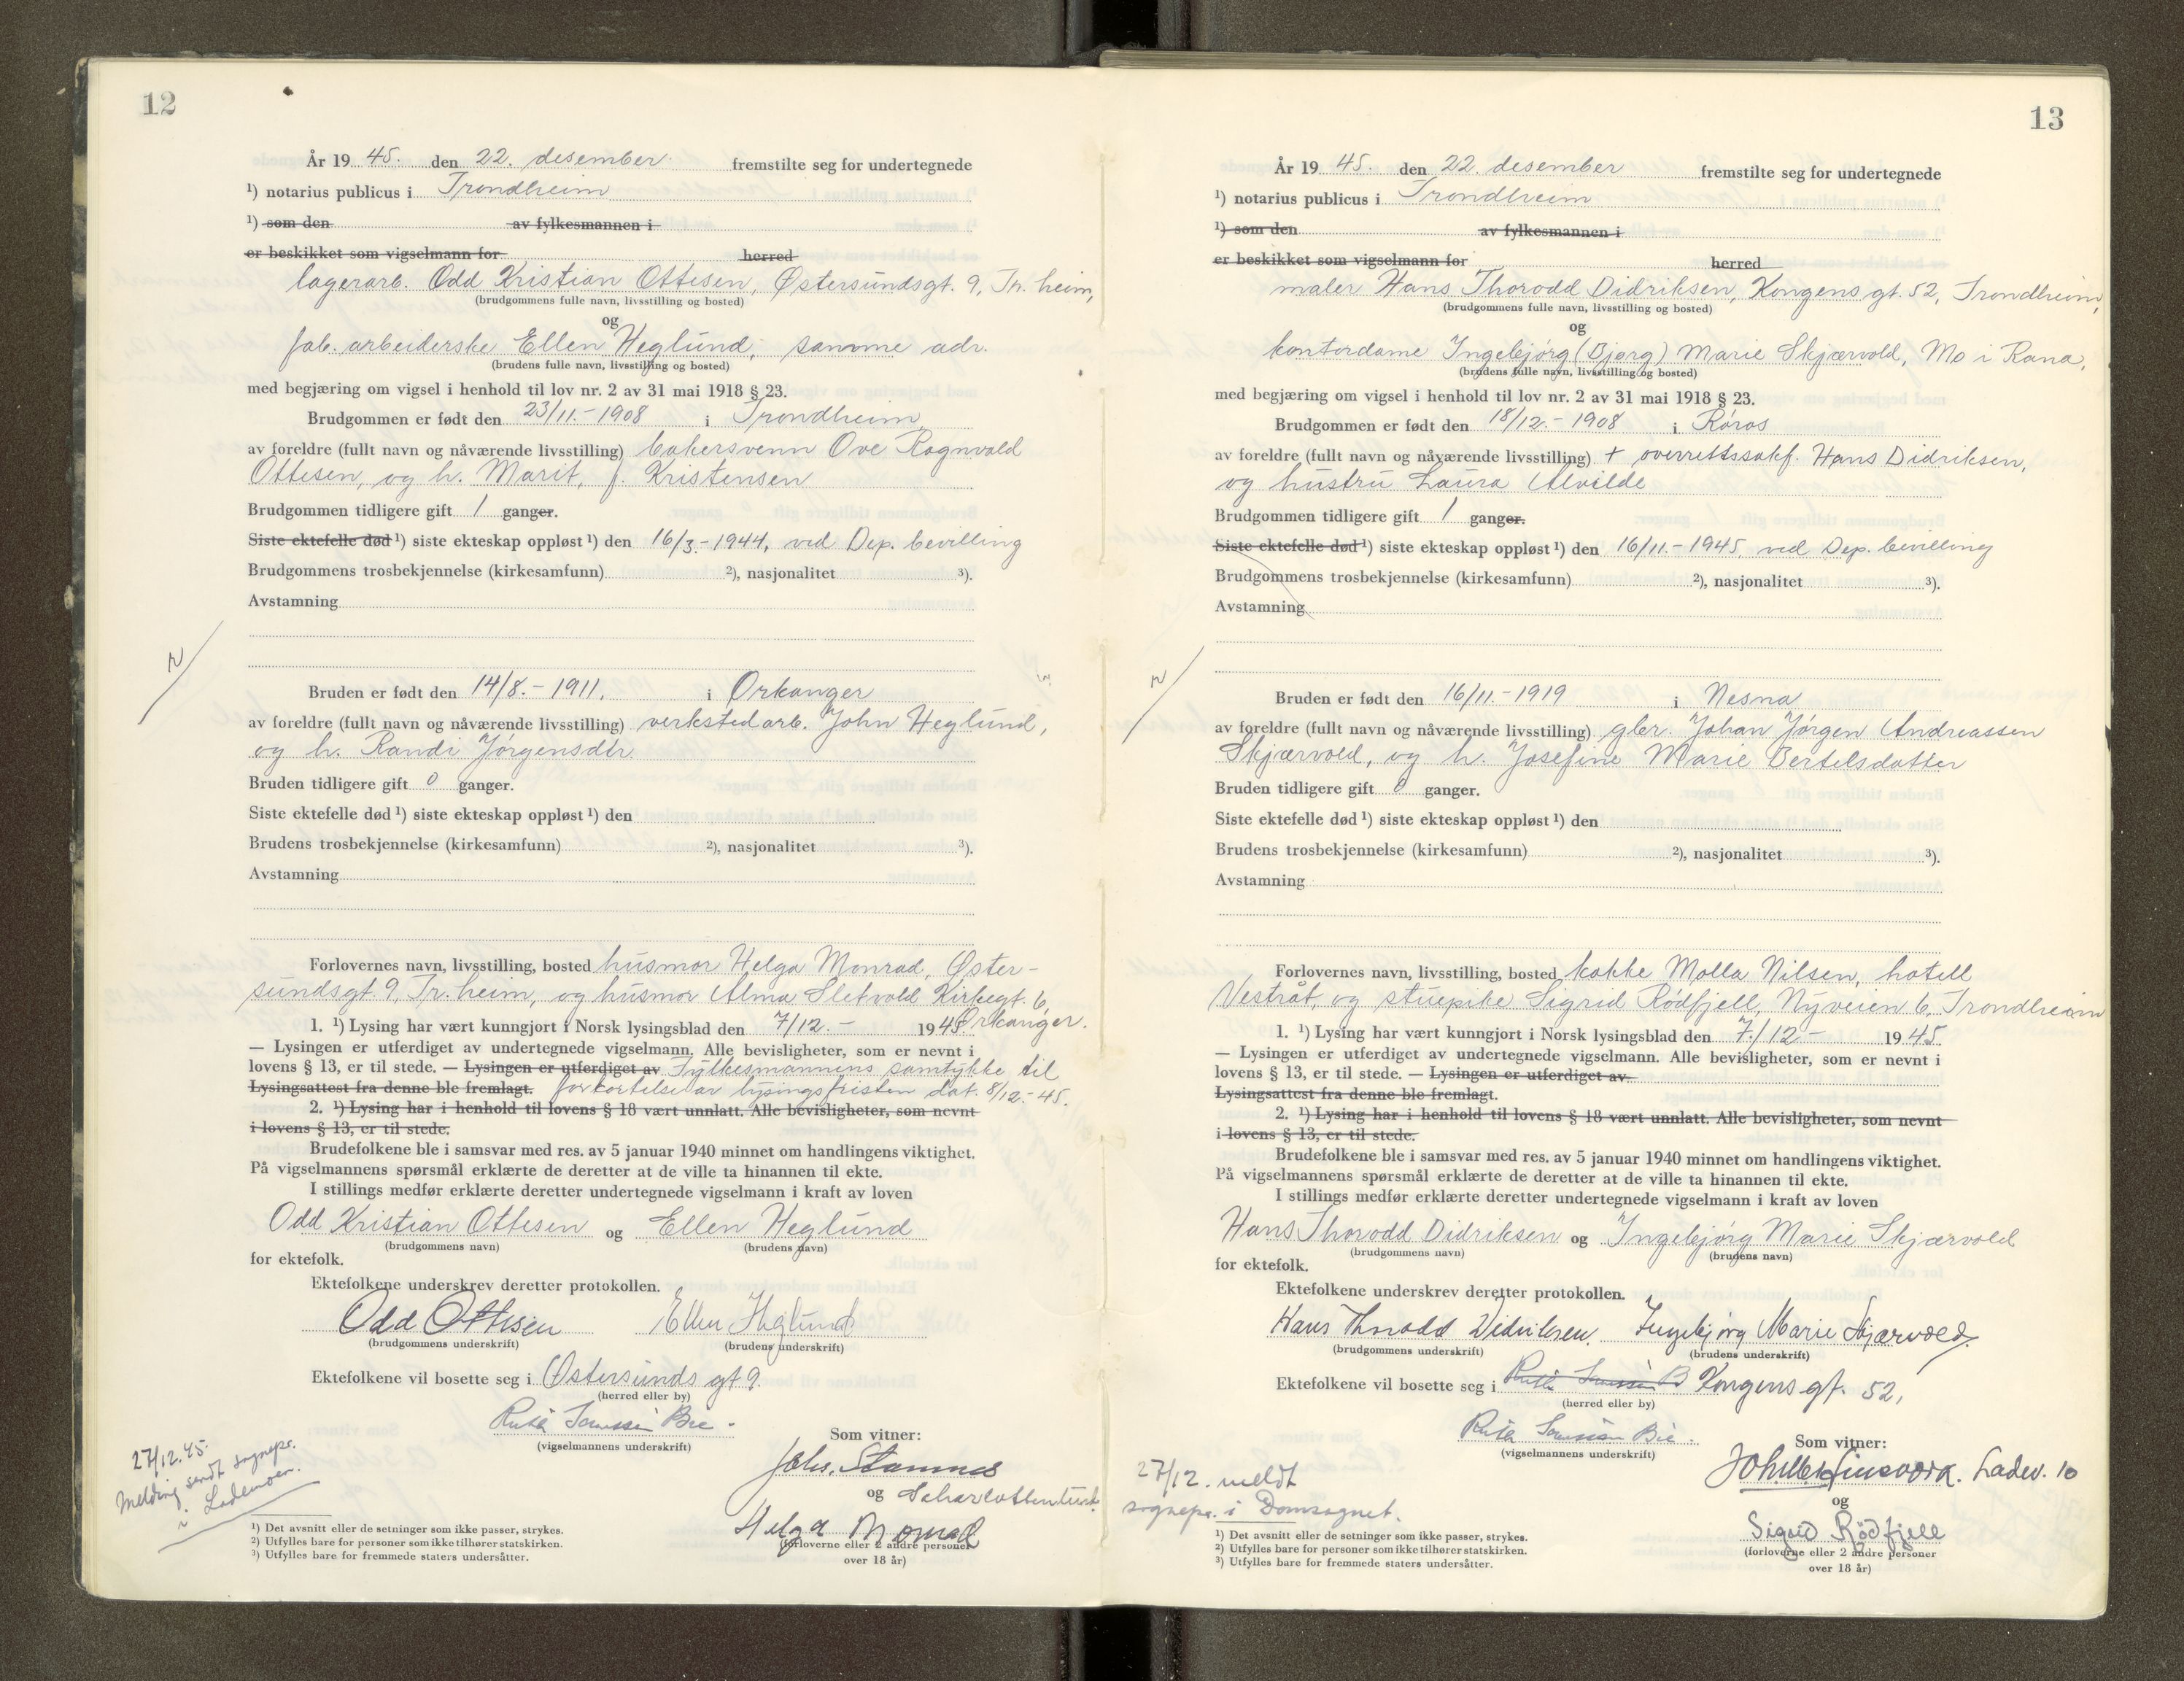 12
År 19 45. den 22. desember fremstilte seg for undertegnede
¹) notarius publicus i Trondheim
¹) som den av fylkesmannen i
er beskikket som vigselmann for herred
lagerarb. Odd Kristian Ottesen, Østersundsgt. 9, Tr.heim,
(brudgommens fulle navn, livsstilling og bosted)
og
fab. arbeiderske Ellen Heglund, samme adr.
(brudens fulle navn, livsstilling og bosted)
med begjæring om vigsel i henhold til lov nr. 2 av 31 mai 1918 § 23.
Brudgommen er født den 23/11.-1908 i Trondheim
av foreldre (fullt navn og nåværende livsstilling) bakersvenn Ove Ragnvald
Ottesen, og h. Marit, f. Kristensen
Brudgommen tidligere gift 1 ganger.
Siste ektefelle død ¹) siste ekteskap oppløst ¹) den 16/3.-1944, ved Dep. bevilling
Brudgommens trosbekjennelse (kirkesamfunn) ²), nasjonalitet ³).
Avstamning
Bruden er født den 14/8.-1911. i Orkanger
av foreldre (fullt navn og nåværende livsstilling) verkstedarb. John Heglund,
og h. Randi Jørgensdtr.
Bruden tidligere gift 0 ganger.
Siste ektefelle død ¹) siste ekteskap oppløst ¹) den
Brudens trosbekjennelse (kirkesamfunn) ²), nasjonalitet ³).
Avstamning
Forlovernes navn, livsstilling, bosted husmor Helga Monrad, Øster-
sundsgt. 9, Tr.heim, og husmor Alma Sletvold Kirkegt. 6,
Orkanger.
1. ¹) Lysing har vært kunngjort i Norsk lysingsblad den 7/12.- 1945.
— Lysingen er utferdiget av undertegnede vigselmann. Alle bevisligheter, som er nevnt i
lovens § 13, er til stede. — Lysingen er utferdiget av Fylkesmannens samtykke til
Lysingsattest fra denne ble fremlagt. forkortelse av lysingsfristen dat. 8/12.-45.
2. ¹) Lysing har i henhold til lovens § 18 vært unnlatt. Alle bevisligheter, som nevnt
i lovens § 13, er til stede.
Brudefolkene ble i samsvar med res. av 5 januar 1940 minnet om handlingens viktighet.
På vigselmannens spørsmål erklærte de deretter at de ville ta hinannen til ekte.
I stillings medfør erklærte deretter undertegnede vigselmann i kraft av loven
Odd Kristian Ottesen og Ellen Heglund
(brudgommens navn) (brudens navn)
for ektefolk.
Ektefolkene underskrev deretter protokollen.
Odd Ottesen Ellen Heglund
(brudgommens underskrift) (brudens underskrift)
Ektefolkene vil bosette seg i Østersunds gt 9.
(herred eller by)
(vigselmannens underskrift)
Som vitner:
Johs. Stamnes
og
Helga Monrad
(forloverne eller 2 andre personer
over 18 år)
27/12.45.
Melding sendt sognepr.
i Lademoen.
¹) Det avsnitt eller de setninger som ikke passer, strykes.
²) Utfylles bare for personer som ikke tilhører statskirken.
³) Utfylles bare for fremmede staters undersåtter.
13
År 19 45. den 22. desember fremstilte seg for undertegnede
¹) notarius publicus i Trondheim
¹) som den av fylkesmannen i
er beskikket som vigselmann for herred
maler Hans Thorodd Didriksen, Kongens gt. 52, Trondheim,
(brudgommens fulle navn, livsstilling og bosted)
og
kontordame Ingebjørg (Bjørg) Marie Skjærvold, Mo i Rana,
(brudens fulle navn, livsstilling og bosted)
med begjæring om vigsel i henhold til lov nr. 2 av 31 mai 1918 § 23.
Brudgommen er født den 18/12.-1908 i Røros
av foreldre (fullt navn og nåværende livsstilling) + overrettssakf. Hans Didriksen,
og hustru Laura Alvilde
Brudgommen tidligere gift 1 ganger.
Siste ektefelle død ¹) siste ekteskap oppløst ¹) den 16/11.-1945, ved Dep. bevilling
Brudgommens trosbekjennelse (kirkesamfunn) ²), nasjonalitet ³).
Avstamning
Bruden er født den 16/11.-1919 i Nesna
av foreldre (fullt navn og nåværende livsstilling) gbr. Johan Jørgen Andreassen
Skjærvold, og h. Josefine Marie Bertelsdatter
Bruden tidligere gift 0 ganger.
Siste ektefelle død ¹) siste ekteskap oppløst ¹) den
Brudens trosbekjennelse (kirkesamfunn) ²), nasjonalitet ³).
Avstamning
Forlovernes navn, livsstilling, bosted kokke Molla Nilsen, hotell
Vestråt, og stuepike Sigrid Rødfjell, Nyveien 6, Trondheim
1. ¹) Lysing har vært kunngjort i Norsk lysingsblad den 7/12- 1945.
— Lysingen er utferdiget av undertegnede vigselmann. Alle bevisligheter, som er nevnt i
lovens § 13, er til stede. — Lysingen er utferdiget av
Lysingsattest fra denne ble fremlagt.
2. ¹) Lysing har i henhold til lovens § 18 vært unnlatt. Alle bevisligheter, som nevnt
i lovens § 13, er til stede.
Brudefolkene ble i samsvar med res. av 5 januar 1940 minnet om handlingens viktighet.
På vigselmannens spørsmål erklærte de deretter at de ville ta hinannen til ekte.
I stillings medfør erklærte deretter undertegnede vigselmann i kraft av loven
Hans Thorodd Didriksen og Ingebjørg Marie Skjærvold
(brudgommens navn) (brudens navn)
for ektefolk.
Ektefolkene underskrev deretter protokollen.
Hans Thorodd Didriksen. Ingebjørg Marie Skjærvold.
(brudgommens underskrift) (brudens underskrift)
Ektefolkene vil bosette seg i Kongens gt. 52,
(herred eller by)
(vigselmannens underskrift)
Som vitner:
Ladev. 10
og
Sigrid Rødfjell
(forloverne eller 2 andre personer
over 18 år)
27/12. meldt
sognepr. i Domsognet.
¹) Det avsnitt eller de setninger som ikke passer, strykes.
²) Utfylles bare for personer som ikke tilhører statskirken.
³) Utfylles bare for fremmede staters undersåtter.